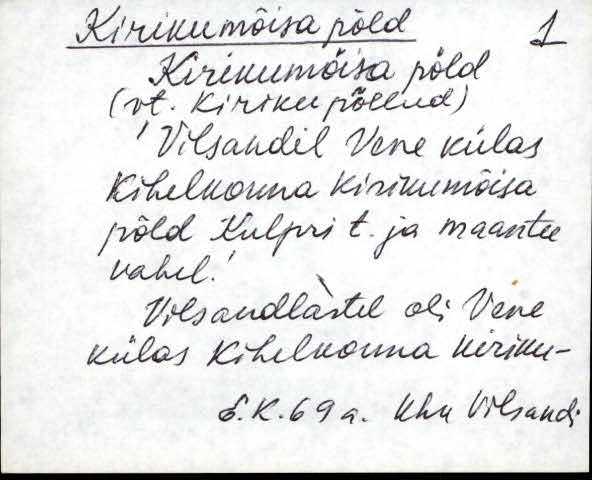 Kirikumõisa põld 1
Kirikumõisa põld
(vt. Kiriku põllud)
'Vilsandil Vene külas
Kihelkonna Kirikumõisa
põld Kulpri t. ja maantee
vahel.'
Vilsandlastel oli Vene
külas Kihelkonna kiriku-
E.K. 69 a. Khn Vilsandi